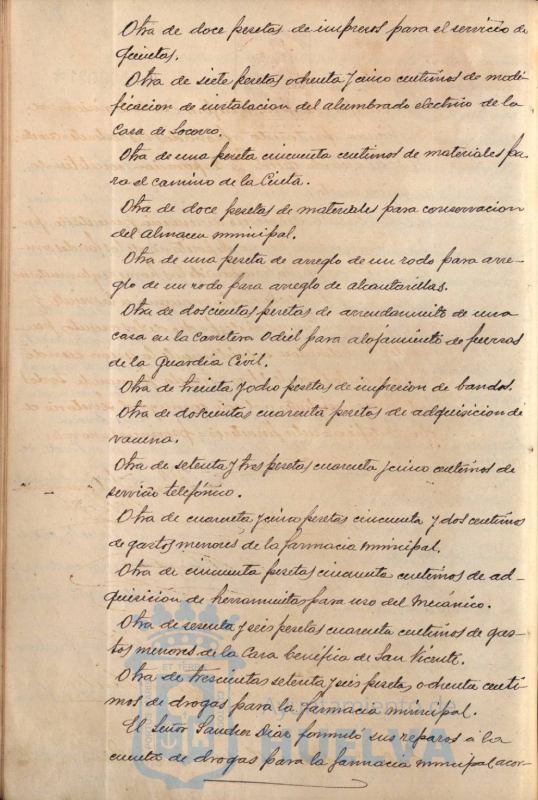 Otra de doce pesetas de impresos para el servicio de
quintas.
Otra de siete pesetas ochenta y cinco centimos de modi-
ficacion de instalacion del alumbrado electrico de la
Casa de Socorro.
Otra de una peseta cincuenta centimos de materiales pa-
ra el camino de la Cinta.
Otra de doce pesetas de materiales para conservacion
del almacen municipal.
Otra de una peseta de arreglo de un rodo para arre-
glo de un rodo para arreglo de alcantarillas.
Otra de doscientas pesetas de arrendamiento de una
casa en la carretera Odiel para alojamiento de fuerzas
de la Guardia Civil.
Otra de treinta y ocho pesetas de impresion de bandos.
Otra de doscientas cuarenta pesetas de adquisicion de
vacuna.
Otra de setenta y tres pesetas cuarenta y cinco centimos de
servicio telefónico.
Otra de cuarenta y cinco pesetas cincuenta y dos centimos
de gastos menores de la farmacia municipal.
Otra de cincuenta pesetas cincuenta centimos de ad-
quisición de herramientas para uso del Mecánico.
Otra de sesenta y seis pesetas cuarenta centimos de gas-
tos menores de la Casa benéfica de San Vicente.
Otra de trescientas setenta y seis pesetas ochenta centi-
mos de drogas para la farmacia municipal.
El Señor Sanchez Diaz formuló sus reparos á la
cuenta de drogas para la farmacia municipal, acor-
Ayuntamiento de
HUELVA